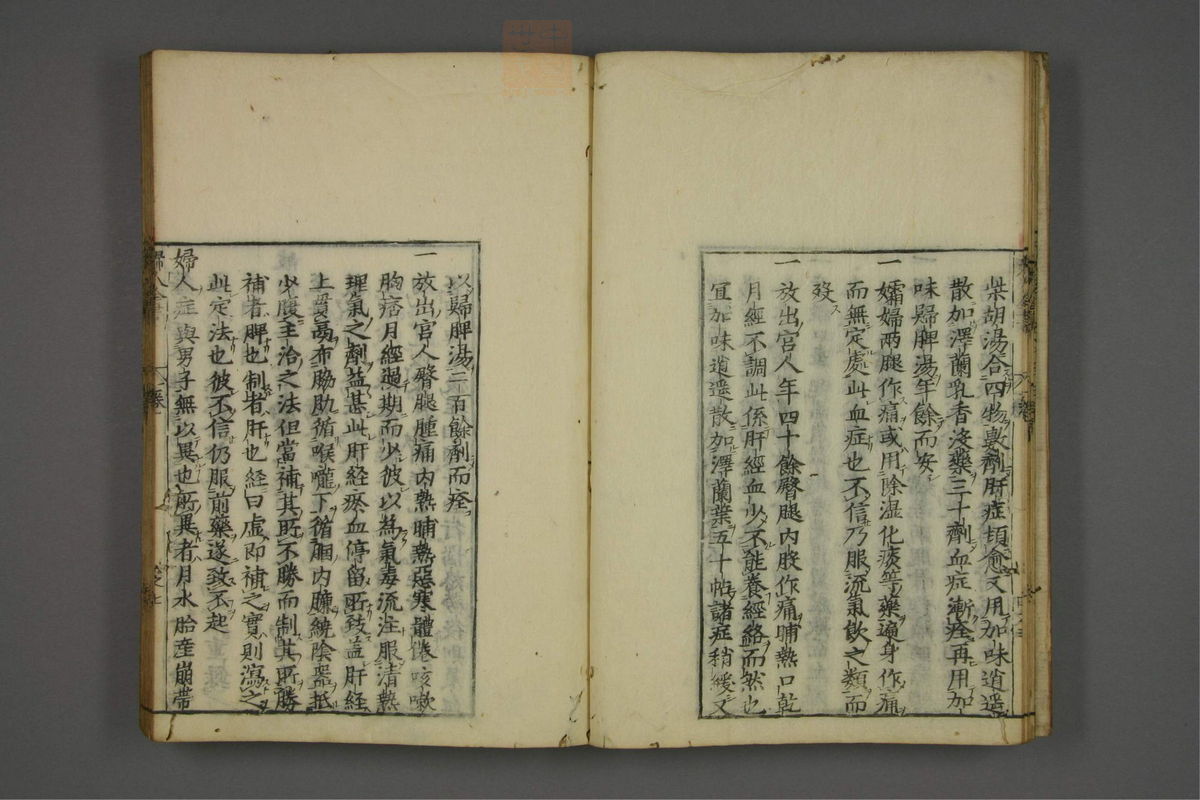 柴胡湯合四物數劑肝症頓愈又用加味逍遥
散加澤蘭乳香没藥三十劑血症漸痊再用加
味歸脾湯年餘而安
一孀婦兩腿作痛或用除湿化痰等藥遍身作痛
而無定處此血症也不信乃服流氣飲之類而
殁
一放出宮人年四十餘臀腿内股作痛晡熱口乾
月經不調此係肝經血少不能養經絡而然也
宜加味逍遥散加澤蘭葉五十帖諸症稍緩又
以歸脾湯二百餘劑而痊
一放出宮人臀腿腫痛内熱晡熱惡寒體倦咳嗽
胸痞月經過期而少彼以為氣毒流注服清熱
理氣之劑益甚此肝経瘀血停留所致盖肝経
上貫鬲布脇肋循喉嚨下循膕内臁繞陰器抵
少腹主治之法但當補其所不勝而制其所勝
補者脾也制者肝也経曰虚則補之實則瀉之
此定法也彼不信仍服前藥遂致不起
婦人症與男子無以異也所異者月水胎産崩帯